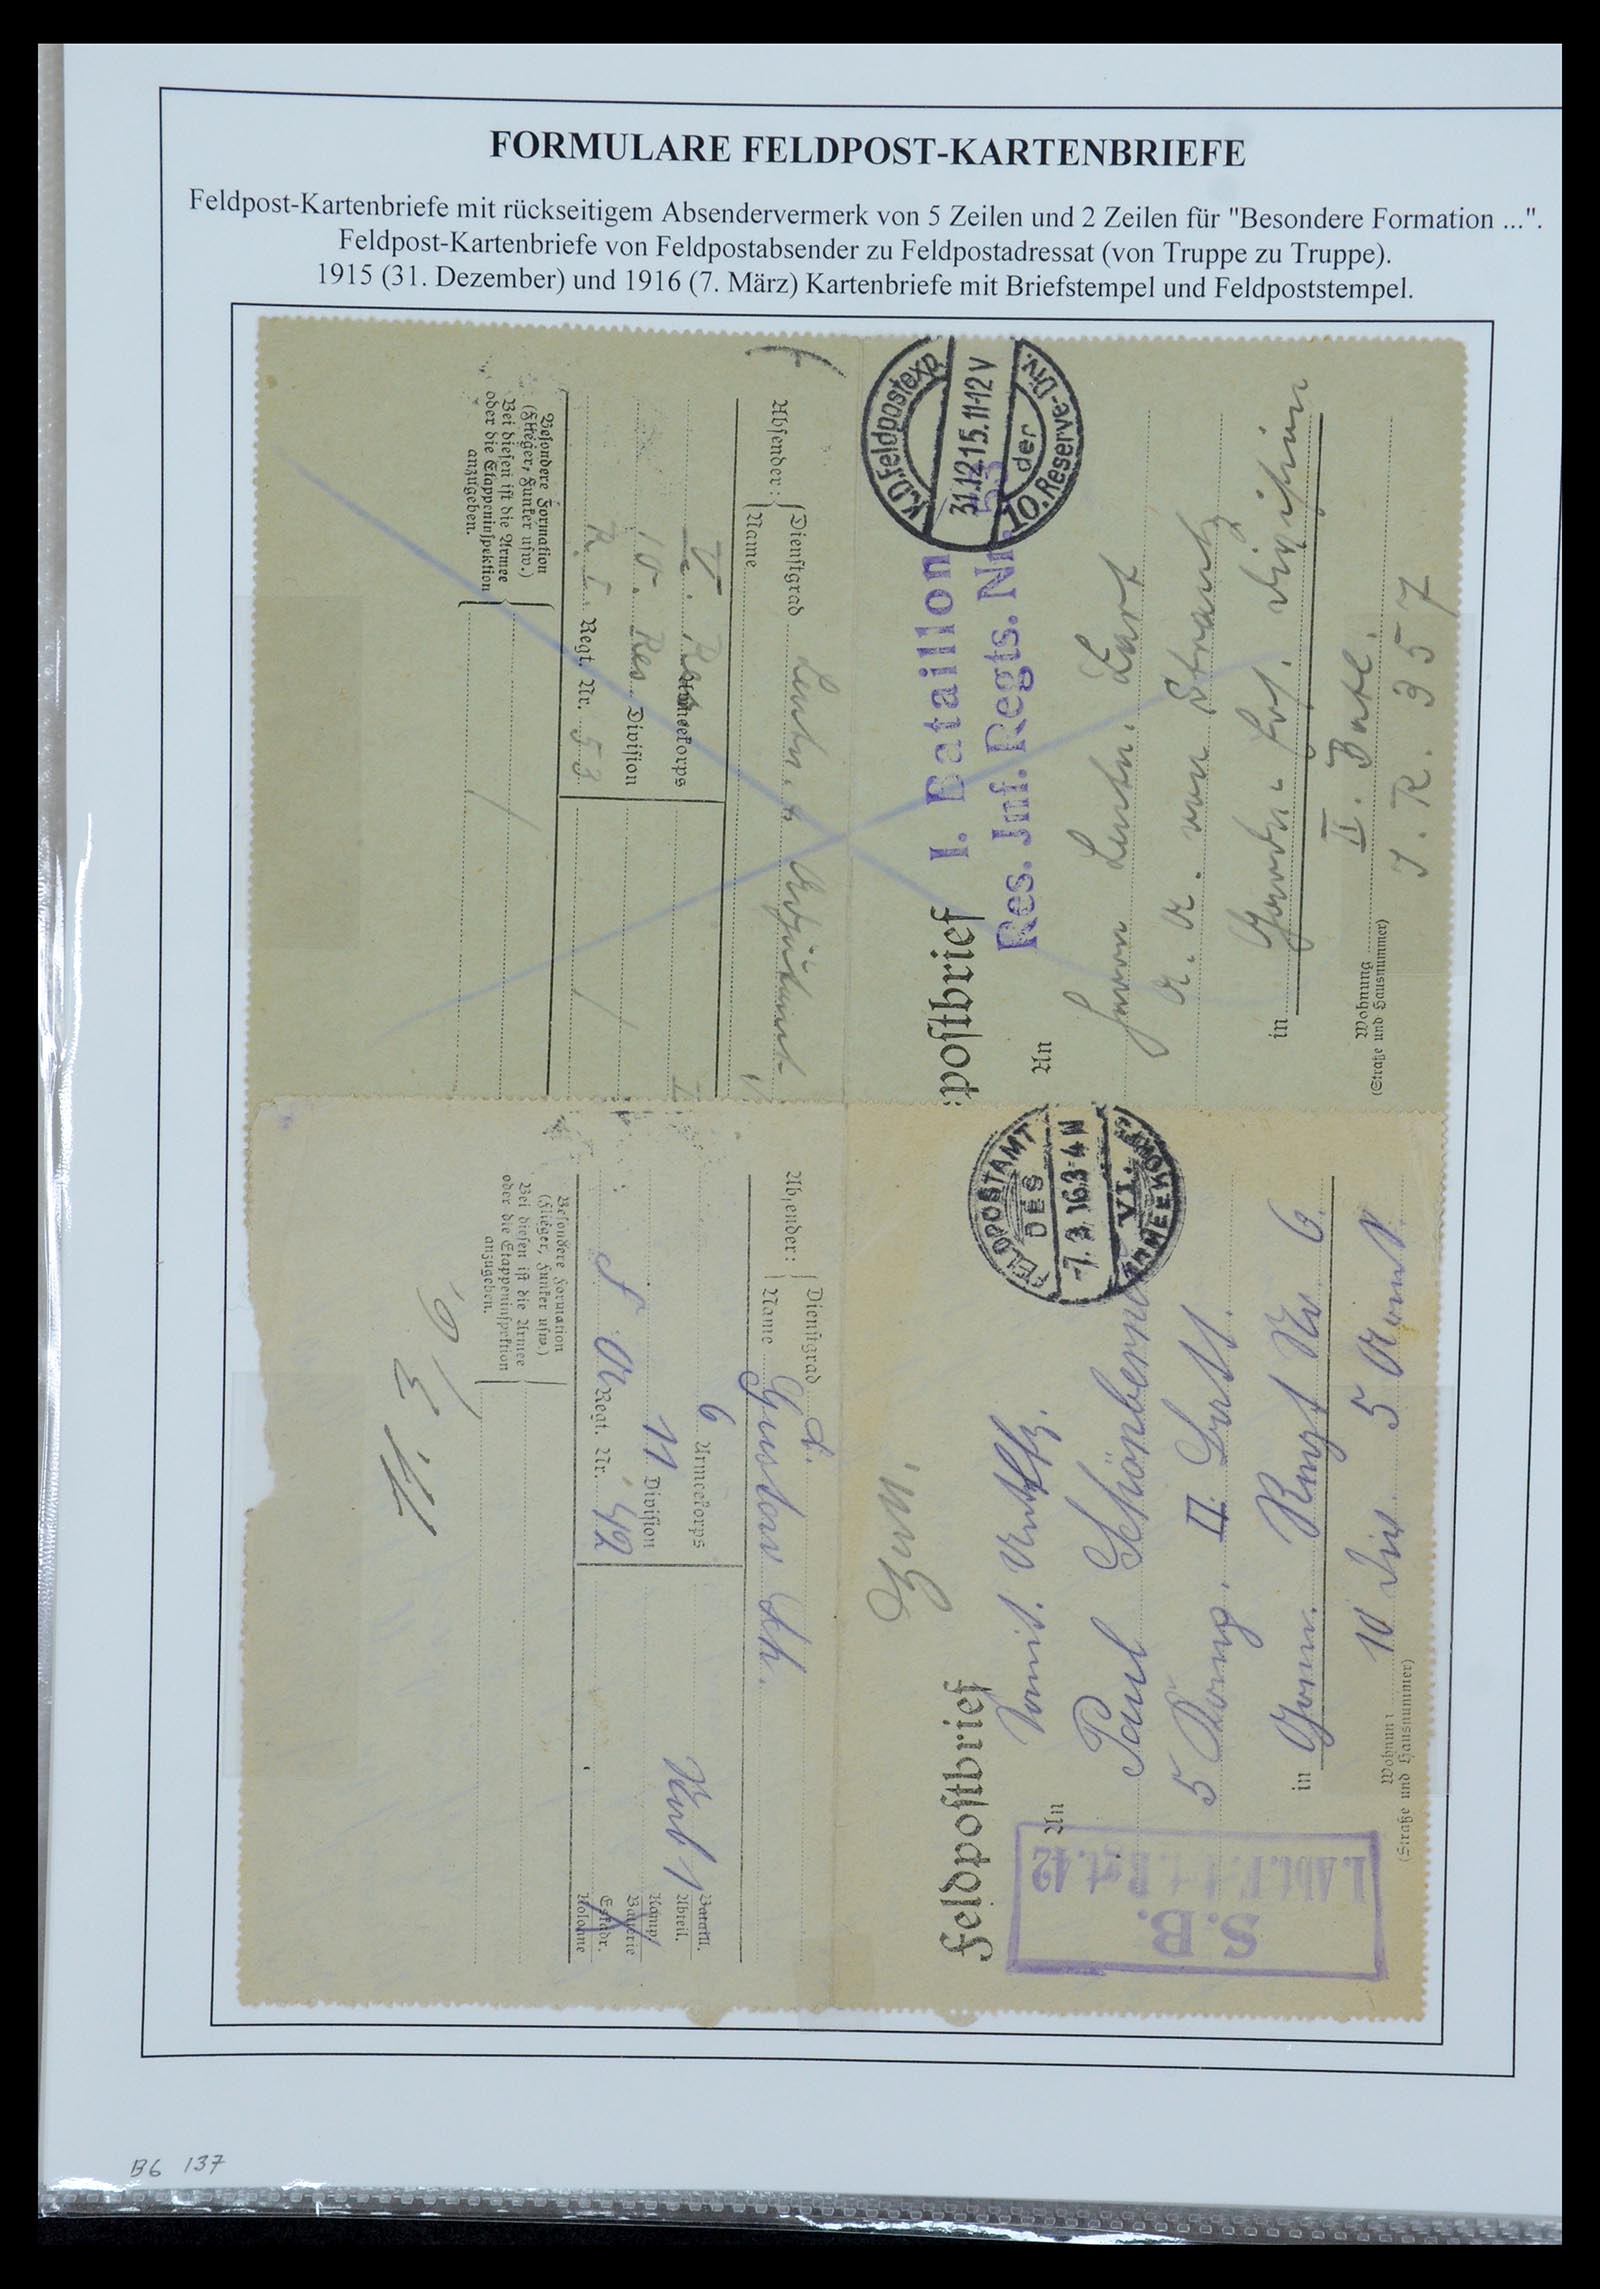 FORMULARE FELDPOST-KARTENBRIEFE
Feldpost-Kartenbriefe mit rückseitigem Absendervermerk von 5 Zeilen und 2 Zeilen für "Besondere Formation ...".
Feldpost-Kartenbriefe von Feldpostabsender zu Feldpostadressat (von Truppe zu Truppe).
1915 (31. Dezember) und 1916 (7. März) Kartenbriefe mit Briefstempel und Feldpoststempel.
K.D. Feldpostexp.
31.12.15.11-12 V
der
10. Reserve-Div.
I. Bataillon
Res. Inf. Regts. Nr. 53
postbrief
An
A. A. von Strantz
in
II. Batl.
Wohnung
(Straße und Hausnummer)
I. R. 357
Absender:
Dienstgrad
Name
V. Res Armeekorps
10. Res Division
R. I. Regt. Nr. 53
Besondere Formation
(Flieger, Funker usw.)
Bei diesen ist die Armee
oder die Etappeninspektion
anzugeben.
FELDPOSTAMT
DES
-7.3.16.3-4 N
VI.
ARMEEKORPS
Feldpostbrief
An
Paul Schönbern
5 Komp. II. Batl.
in Gren. Regt Nr. 6.
10 Div. 5 Armk.
Wohnun
(Straße und Hausnummer)
S.B.
I. Abt. Feldart. Rgt. 42
Absender:
Dienstgrad
Name Gustav
6 Armeekorps
11 Division
F A Regt. Nr. 42
Bataill.
Abteil.
Komp.
Batterie
Eskadr.
Kolonne
Besondere Formation
(Flieger, Funker usw.)
Bei diesen ist die Armee
oder die Etappeninspektion
anzugeben.
B6 137